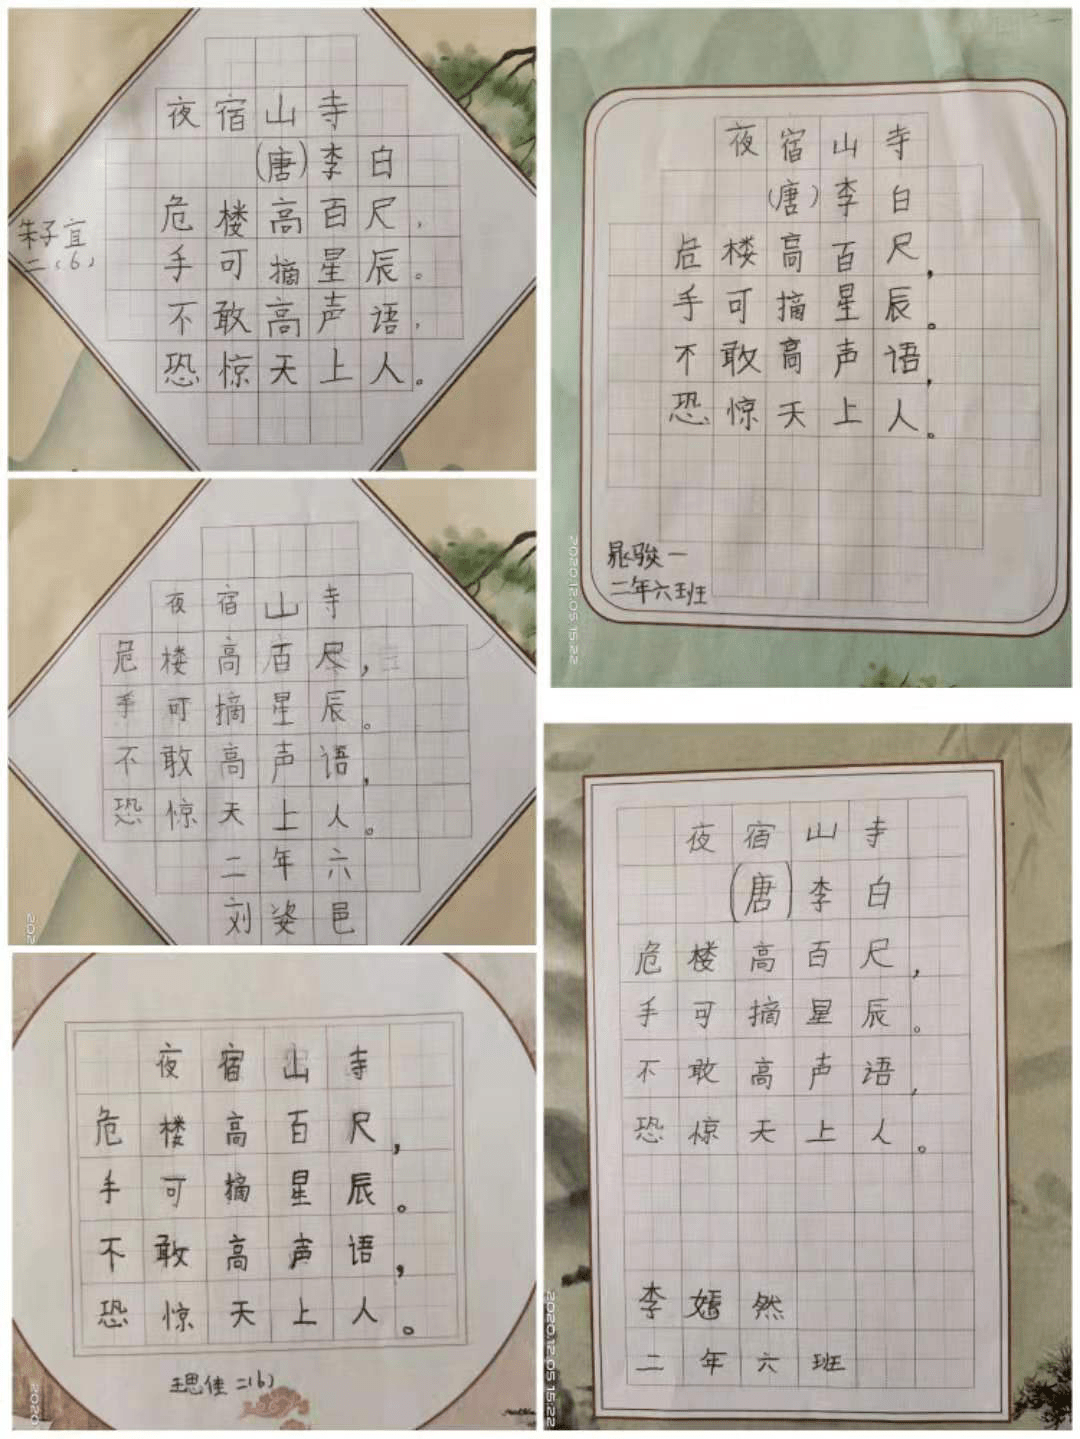 夜宿山寺
(唐)李白
危楼高百尺，
手可摘星辰。
不敢高声语，
恐惊天上人。
朱子宜
二(6)
夜宿山寺
(唐)李白
危楼高百尺，
手可摘星辰。
不敢高声语，
恐惊天上人。
晁骏一
二年六班
2020.12.05 15:22
夜宿山寺
危楼高百尺，
手可摘星辰。
不敢高声语，
恐惊天上人。
二年六
刘姿邑
202
夜宿山寺
(唐)李白
危楼高百尺，
手可摘星辰。
不敢高声语，
恐惊天上人。
李嫣然
二年六班
2020.12.05 15:22
夜宿山寺
危楼高百尺，
手可摘星辰。
不敢高声语，
恐惊天上人。
王思佳二(6)
2020